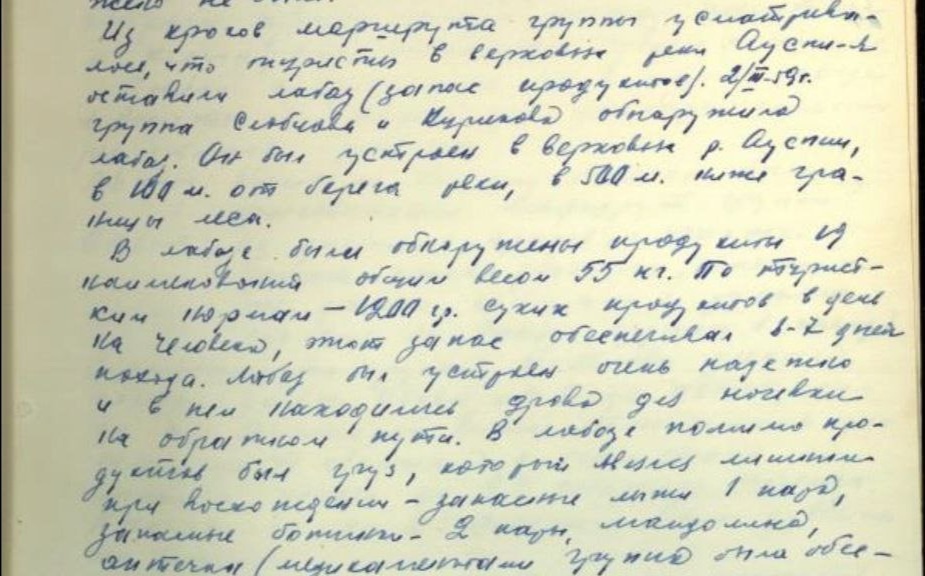 жено не было.
Из кроков маршрута группы усматрива-
лось, что туристы в верховьи реки Ауспи-я
оставили лабаз (запас продуктов). 2/III-59г.
группа Слобцова и Курикова обнаружила
лабаз. Он был устроен в верховьи р. Ауспии,
в 100 м. от берега реки, в 500 м. ниже гра-
ницы леса.
В лабазе были обнаружены продукты 19
наименований общим весом 55 кг. По турист-
ким нормам – 1200 гр. сухих продуктов в день
на человека, этот запас обеспечивал 6-7 дней
похода. Лабаз был устроен очень надежно
и в нем находились дрова для ночевки
на обратном пути. В лабазе помимо про-
дуктов был груз, который лишним
при восхождении – запасные лыжи 1 пара,
запасные ботинки – 2 пары, мандолина,
аптечки (медикаментами группа была обес-